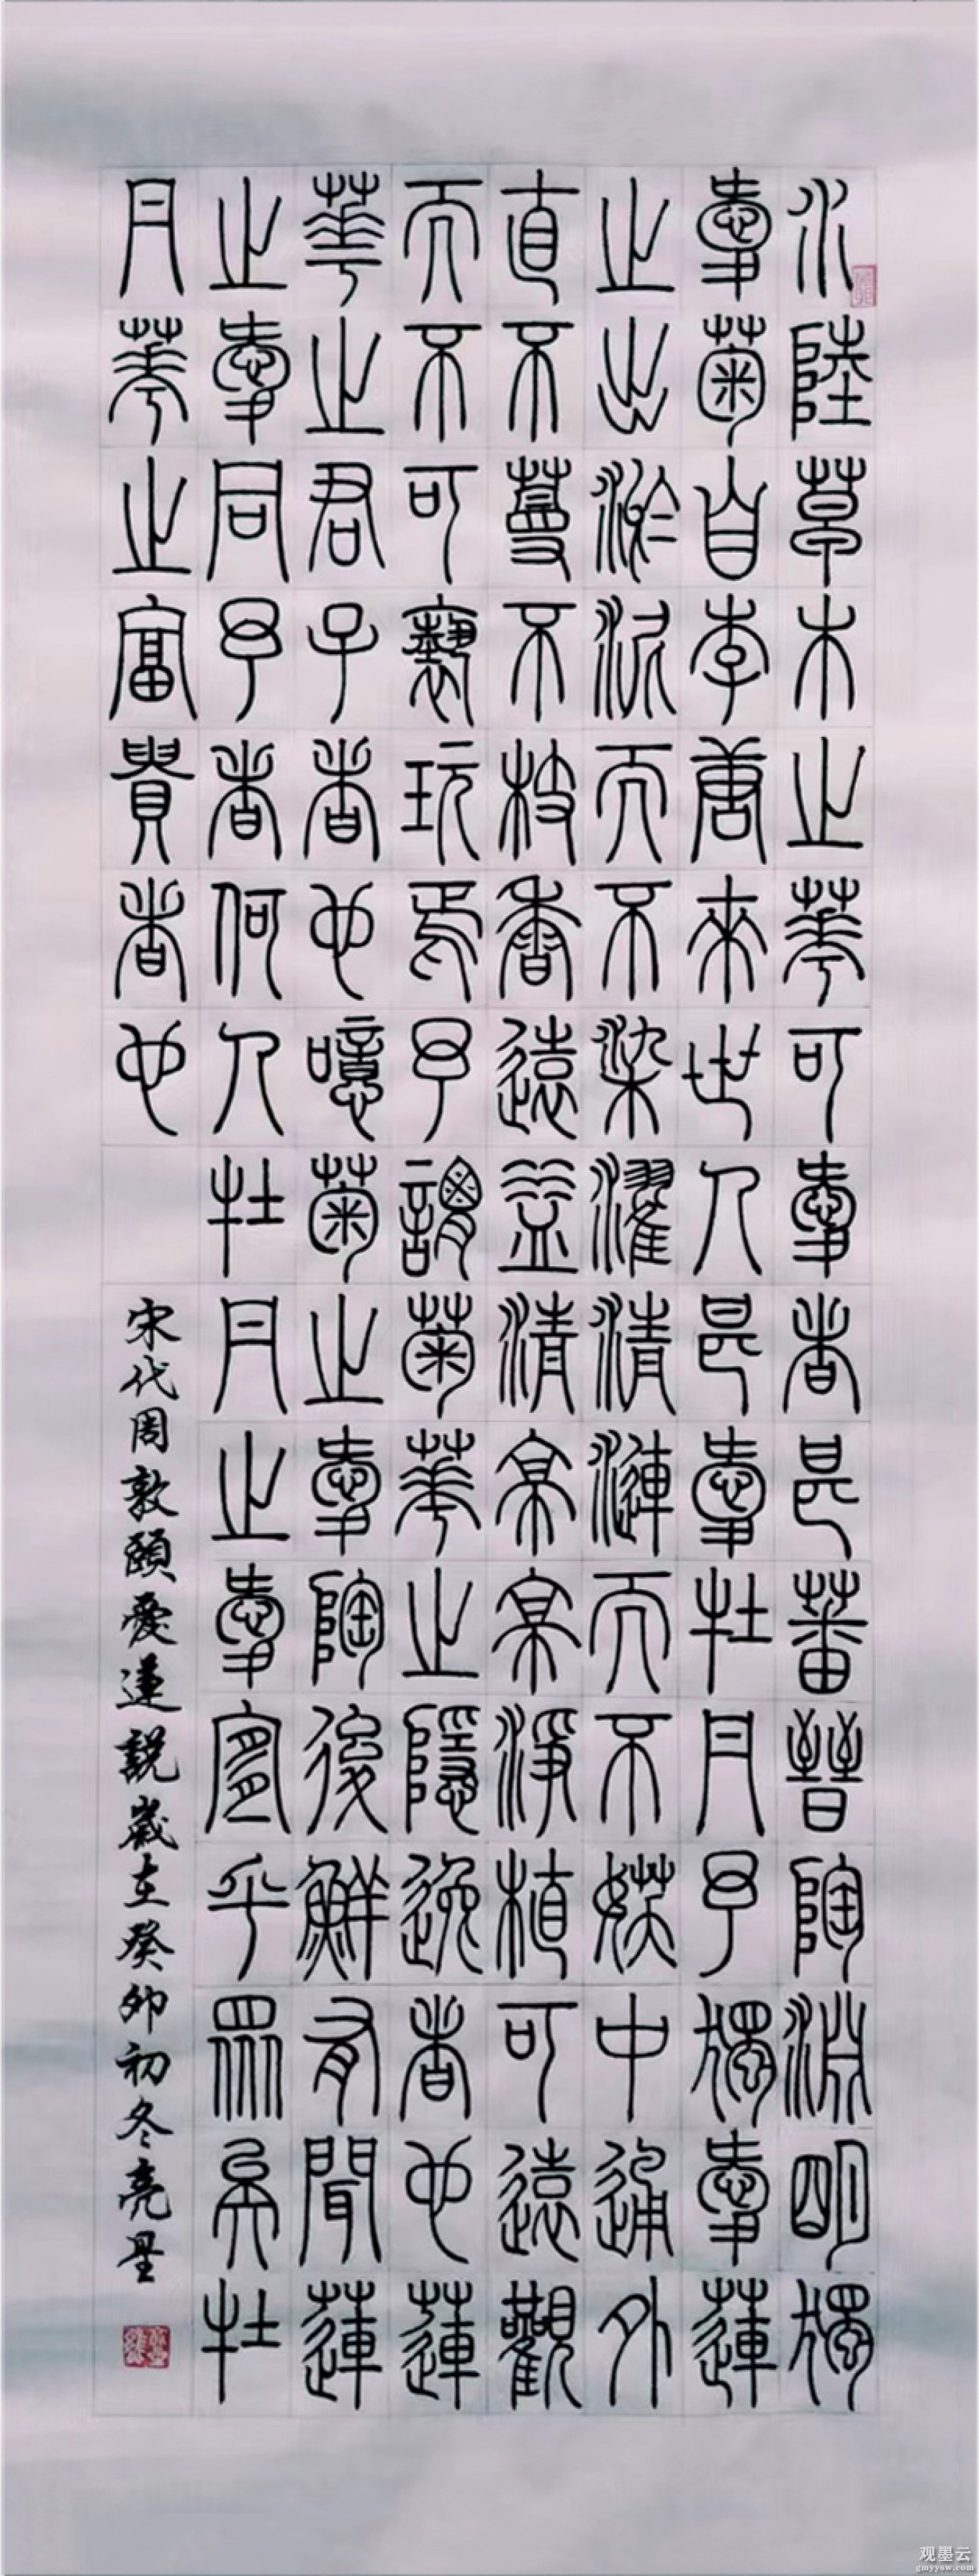 水陸草木之華可愛者甚蕃晉陶淵明獨
愛菊自李唐來世人甚愛牡丹予獨愛蓮
之出淤泥而不染濯清漣而不妖中通外
直不蔓不枝香遠益清亭亭淨植可遠觀
而不可褻玩焉予謂菊華之隱逸者也蓮
華之君子者也噫菊之愛陶後鮮有聞蓮
之愛同予者何人牡丹之愛宜乎眾矣牡
丹華之富貴者也
宋代周敦頤愛蓮說歲在癸卯初冬亮星
观墨云
gmyysw.com